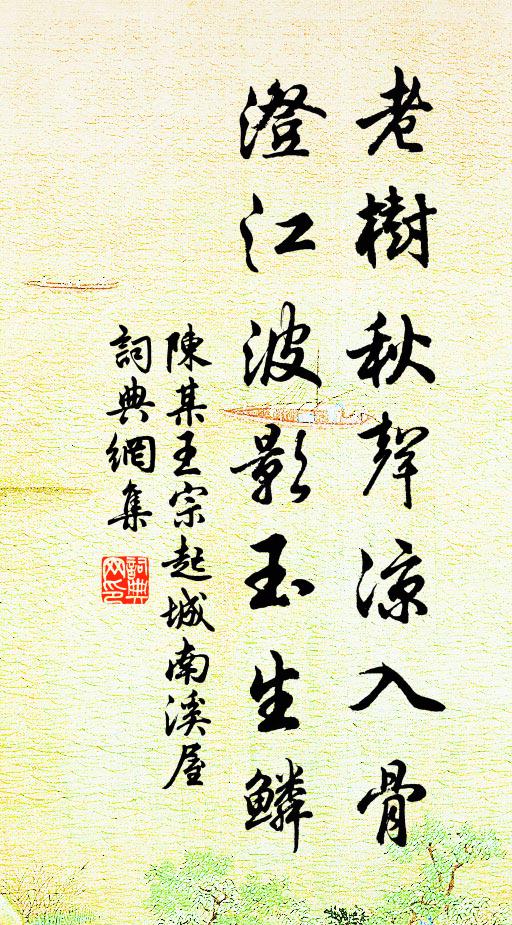 老樹秋聲凉入骨
澄江波影玉生鱗
陳某王宗起城南溪屋
詞典網集
詞典网印